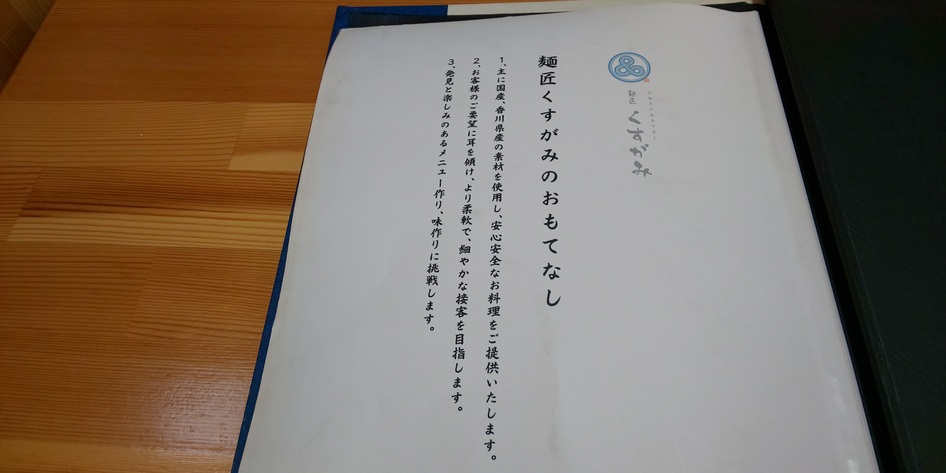 麺匠 くすがみ
麺匠くすがみのおもてなし
1、主に国産、香川県産の素材を使用し、安心安全なお料理をご提供いたします。
2、お客様のご要望に耳を傾け、より柔軟で、細やかな接客を目指します。
3、発見と楽しみのあるメニュー作り、味作りに挑戦します。